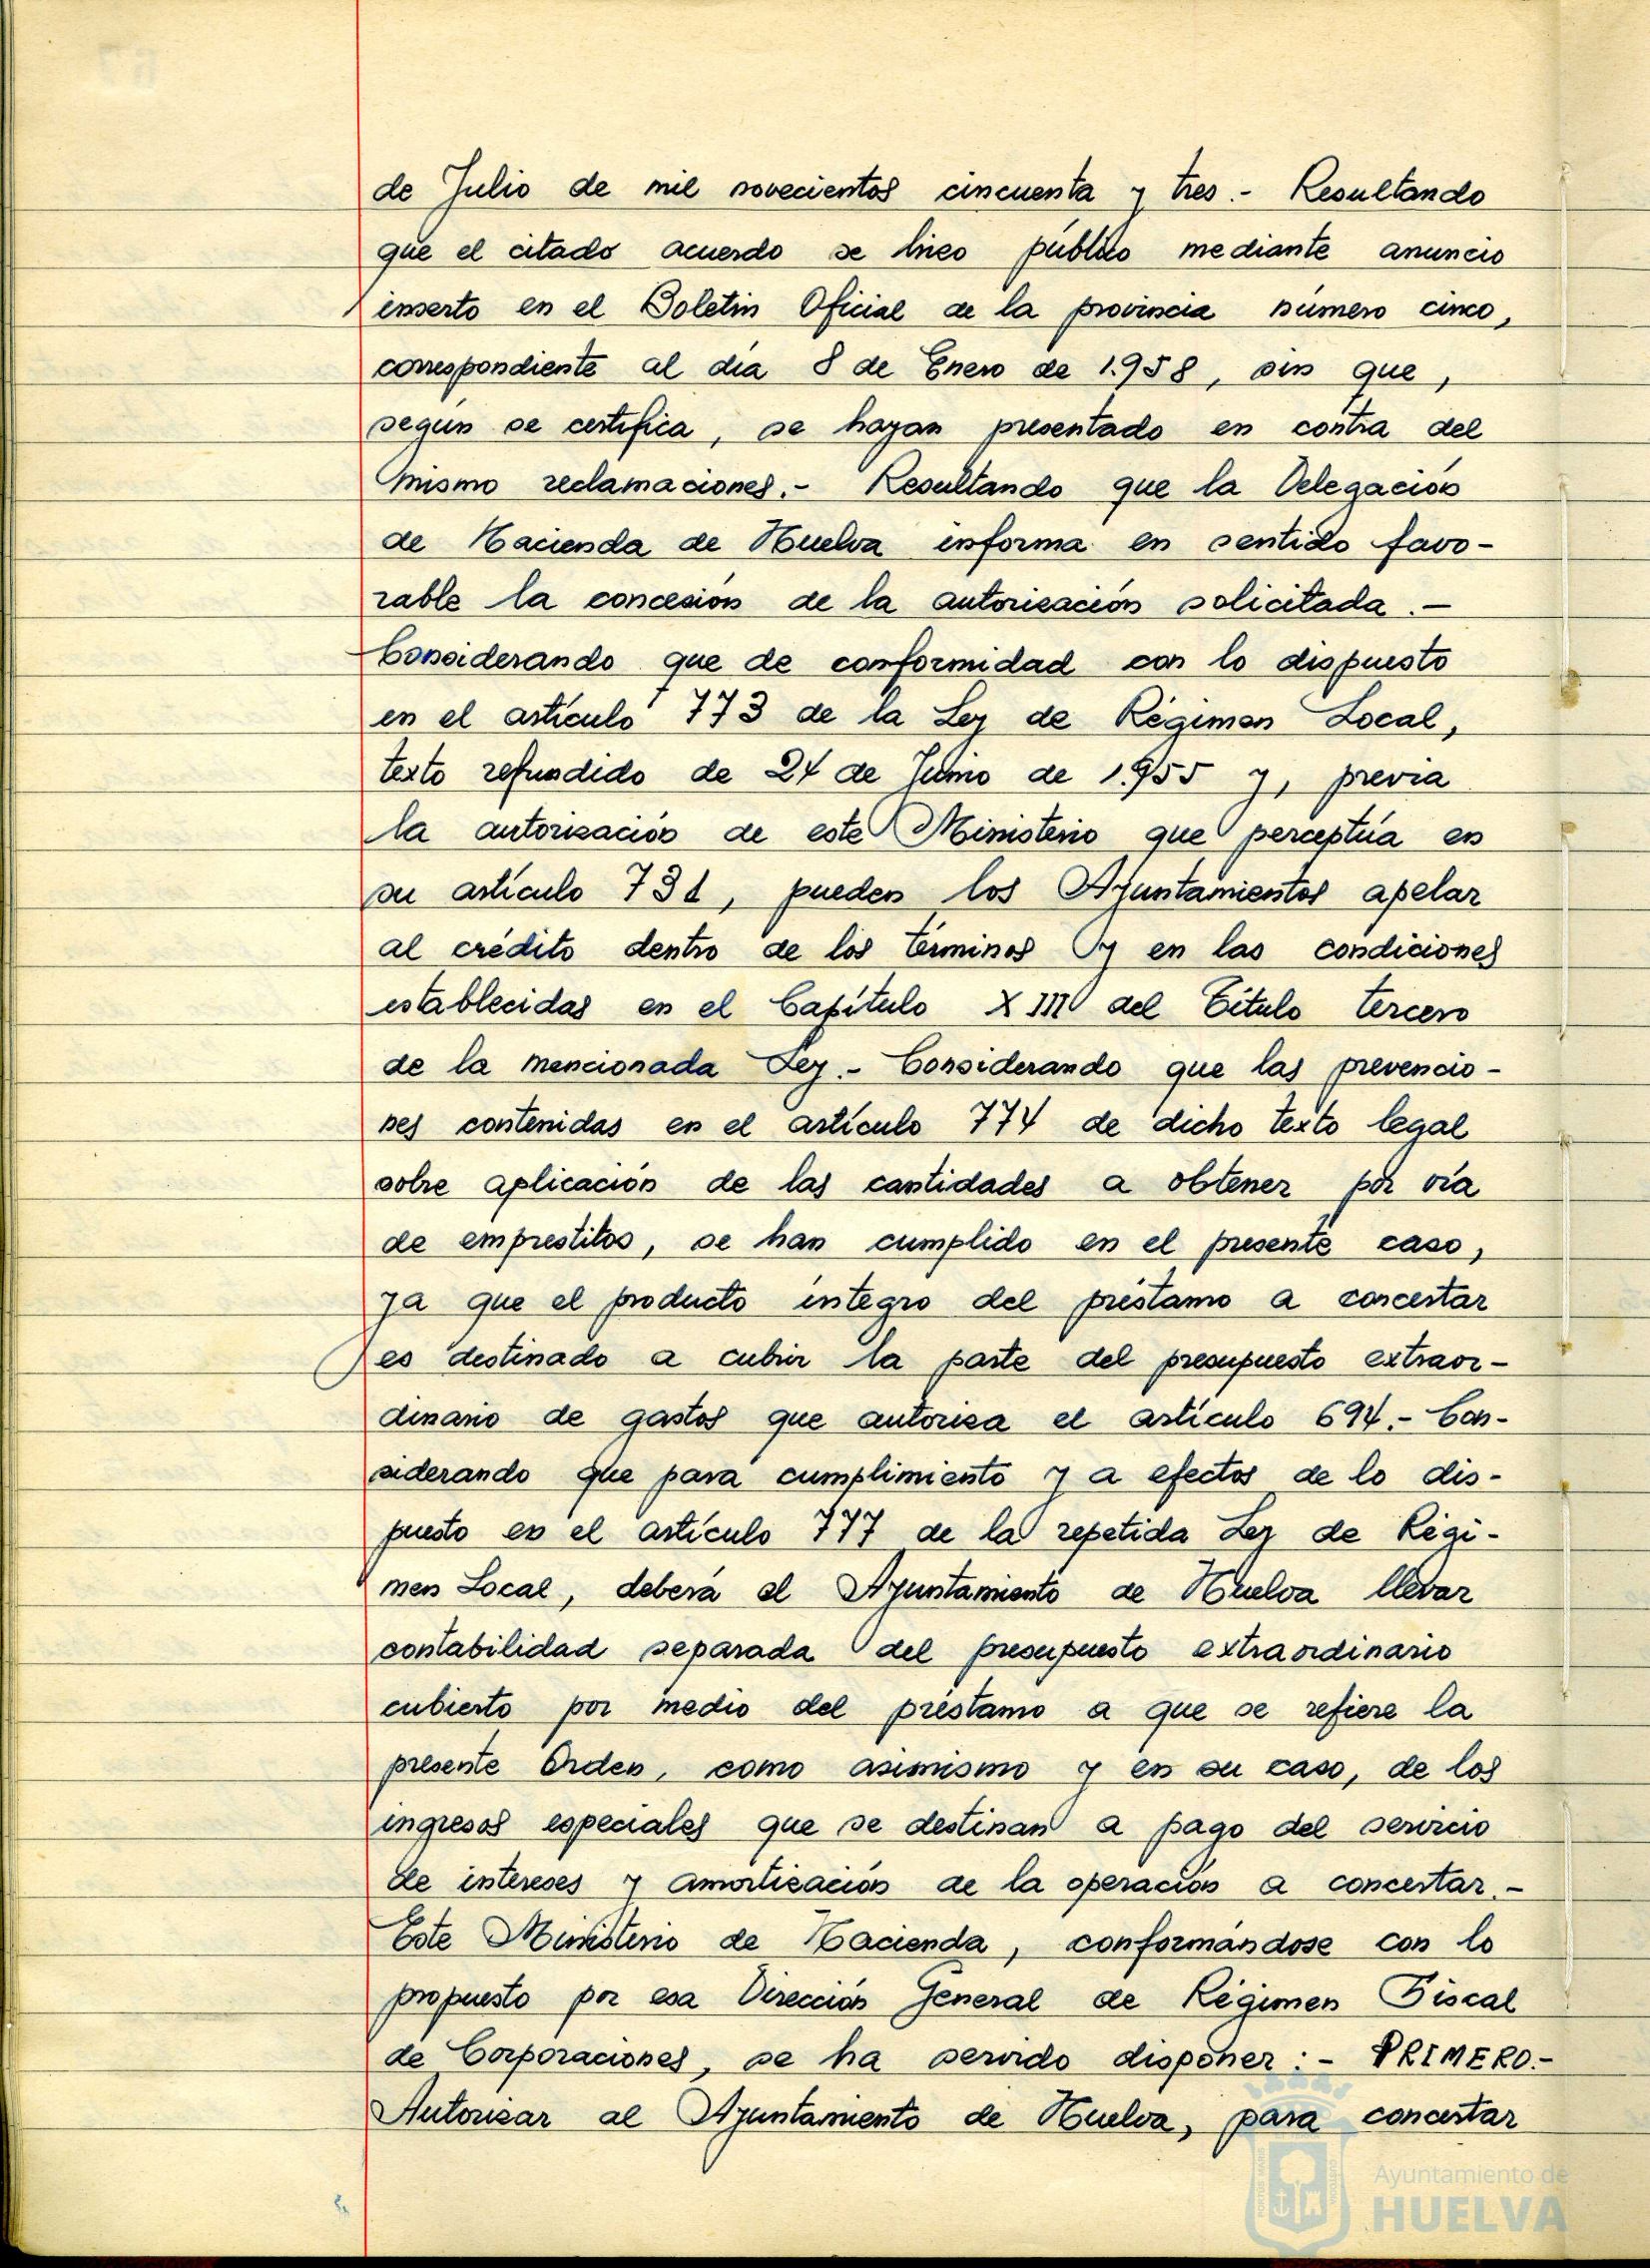 de Julio de mil novecientos cincuenta y tres.- Resultando
que el citado acuerdo se hizo público mediante anuncio
inserto en el Boletin Oficial de la provincia número cinco,
correspondiente al día 8 de Enero de 1.958, sin que,
según se certifica, se hayan presentado en contra del
mismo reclamaciones.- Resultando que la Delegación
de Hacienda de Huelva informa en sentido favo-
rable la concesión de la autorización solicitada.-
Considerando que de conformidad con lo dispuesto
en el artículo 773 de la Ley de Régimen Local,
texto refundido de 24 de Junio de 1.955 y, previa
la autorización de este Ministerio que perceptúa en
su artículo 781, pueden los Ayuntamientos apelar
al crédito dentro de los términos y en las condiciones
establecidas en el Capítulo XIII del Título tercero
de la mencionada Ley.- Considerando que las prevencio-
nes contenidas en el artículo 774 de dicho texto legal
sobre aplicación de las cantidades a obtener por vía
de emprestitos, se han cumplido en el presente caso,
ya que el producto íntegro del préstamo a concertar
es destinado a cubrir la parte del presupuesto extraor-
dinario de gastos que autoriza el artículo 694.- Con-
siderando que para cumplimiento y a efectos de lo dis-
puesto en el artículo 777 de la repetida Ley de Régi-
men Local, deberá el Ayuntamiento de Huelva llevar
contabilidad separada del presupuesto extraordinario
cubierto por medio del préstamo a que se refiere la
presente Orden, como asimismo y en su caso, de los
ingresos especiales que se destinan a pago del servicio
de intereses y amortización de la operación a concertar.-
Este Ministerio de Hacienda, conformándose con lo
propuesto por esa Dirección General de Régimen Fiscal
de Corporaciones, se ha servido disponer:- PRIMERO.-
Autorizar al Ayuntamiento de Huelva, para concertar
Ayuntamiento de
HUELVA